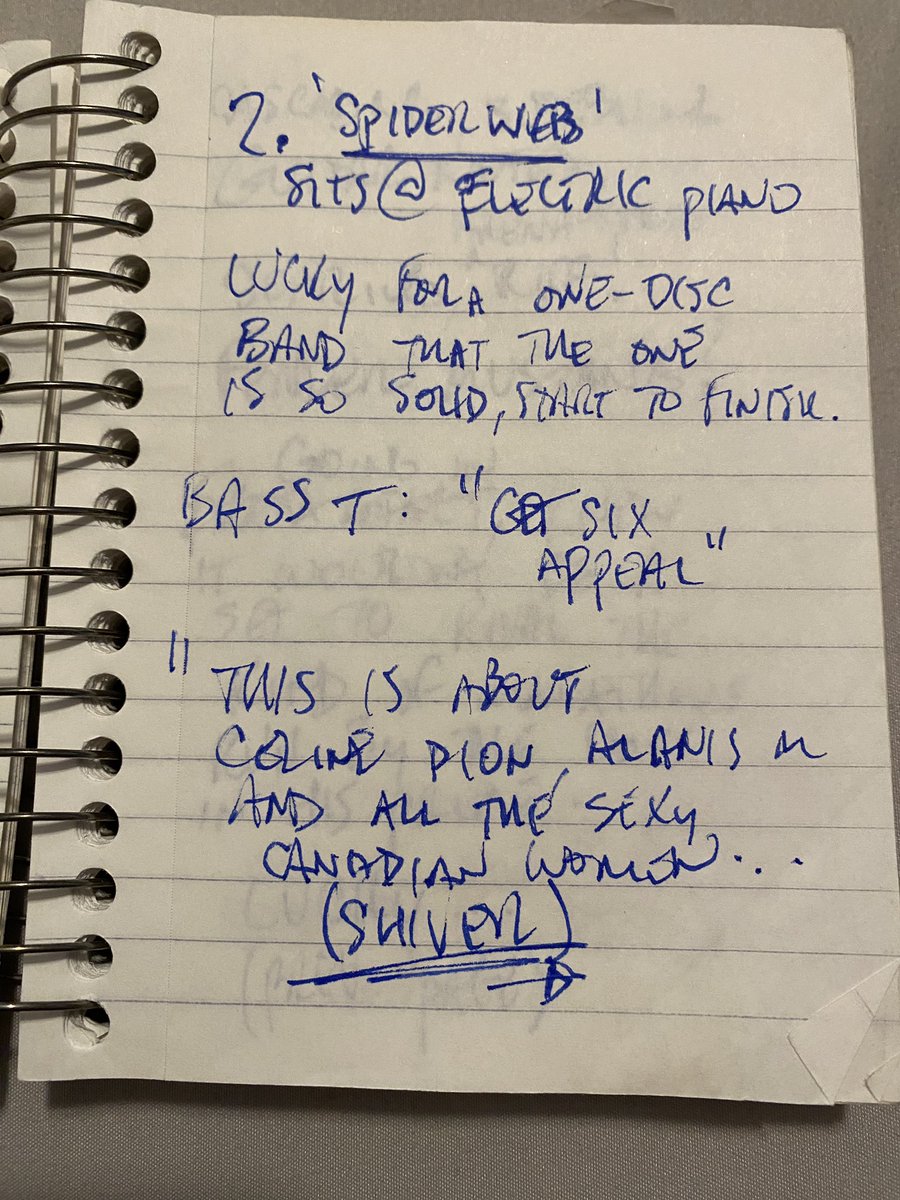 2. 'SPIDERWEB'
SITS @ ELECTRIC PIANO
LUCKY FOR A ONE-DISC
BAND THAT THE ONE
IS SO SOLID, START TO FINISH.
BASS T: "GET SIX
APPEAL"
"THIS IS ABOUT
CELINE DION, ALANIS M
AND ALL THE SEXY
CANADIAN WOMEN...
(SHIVER)